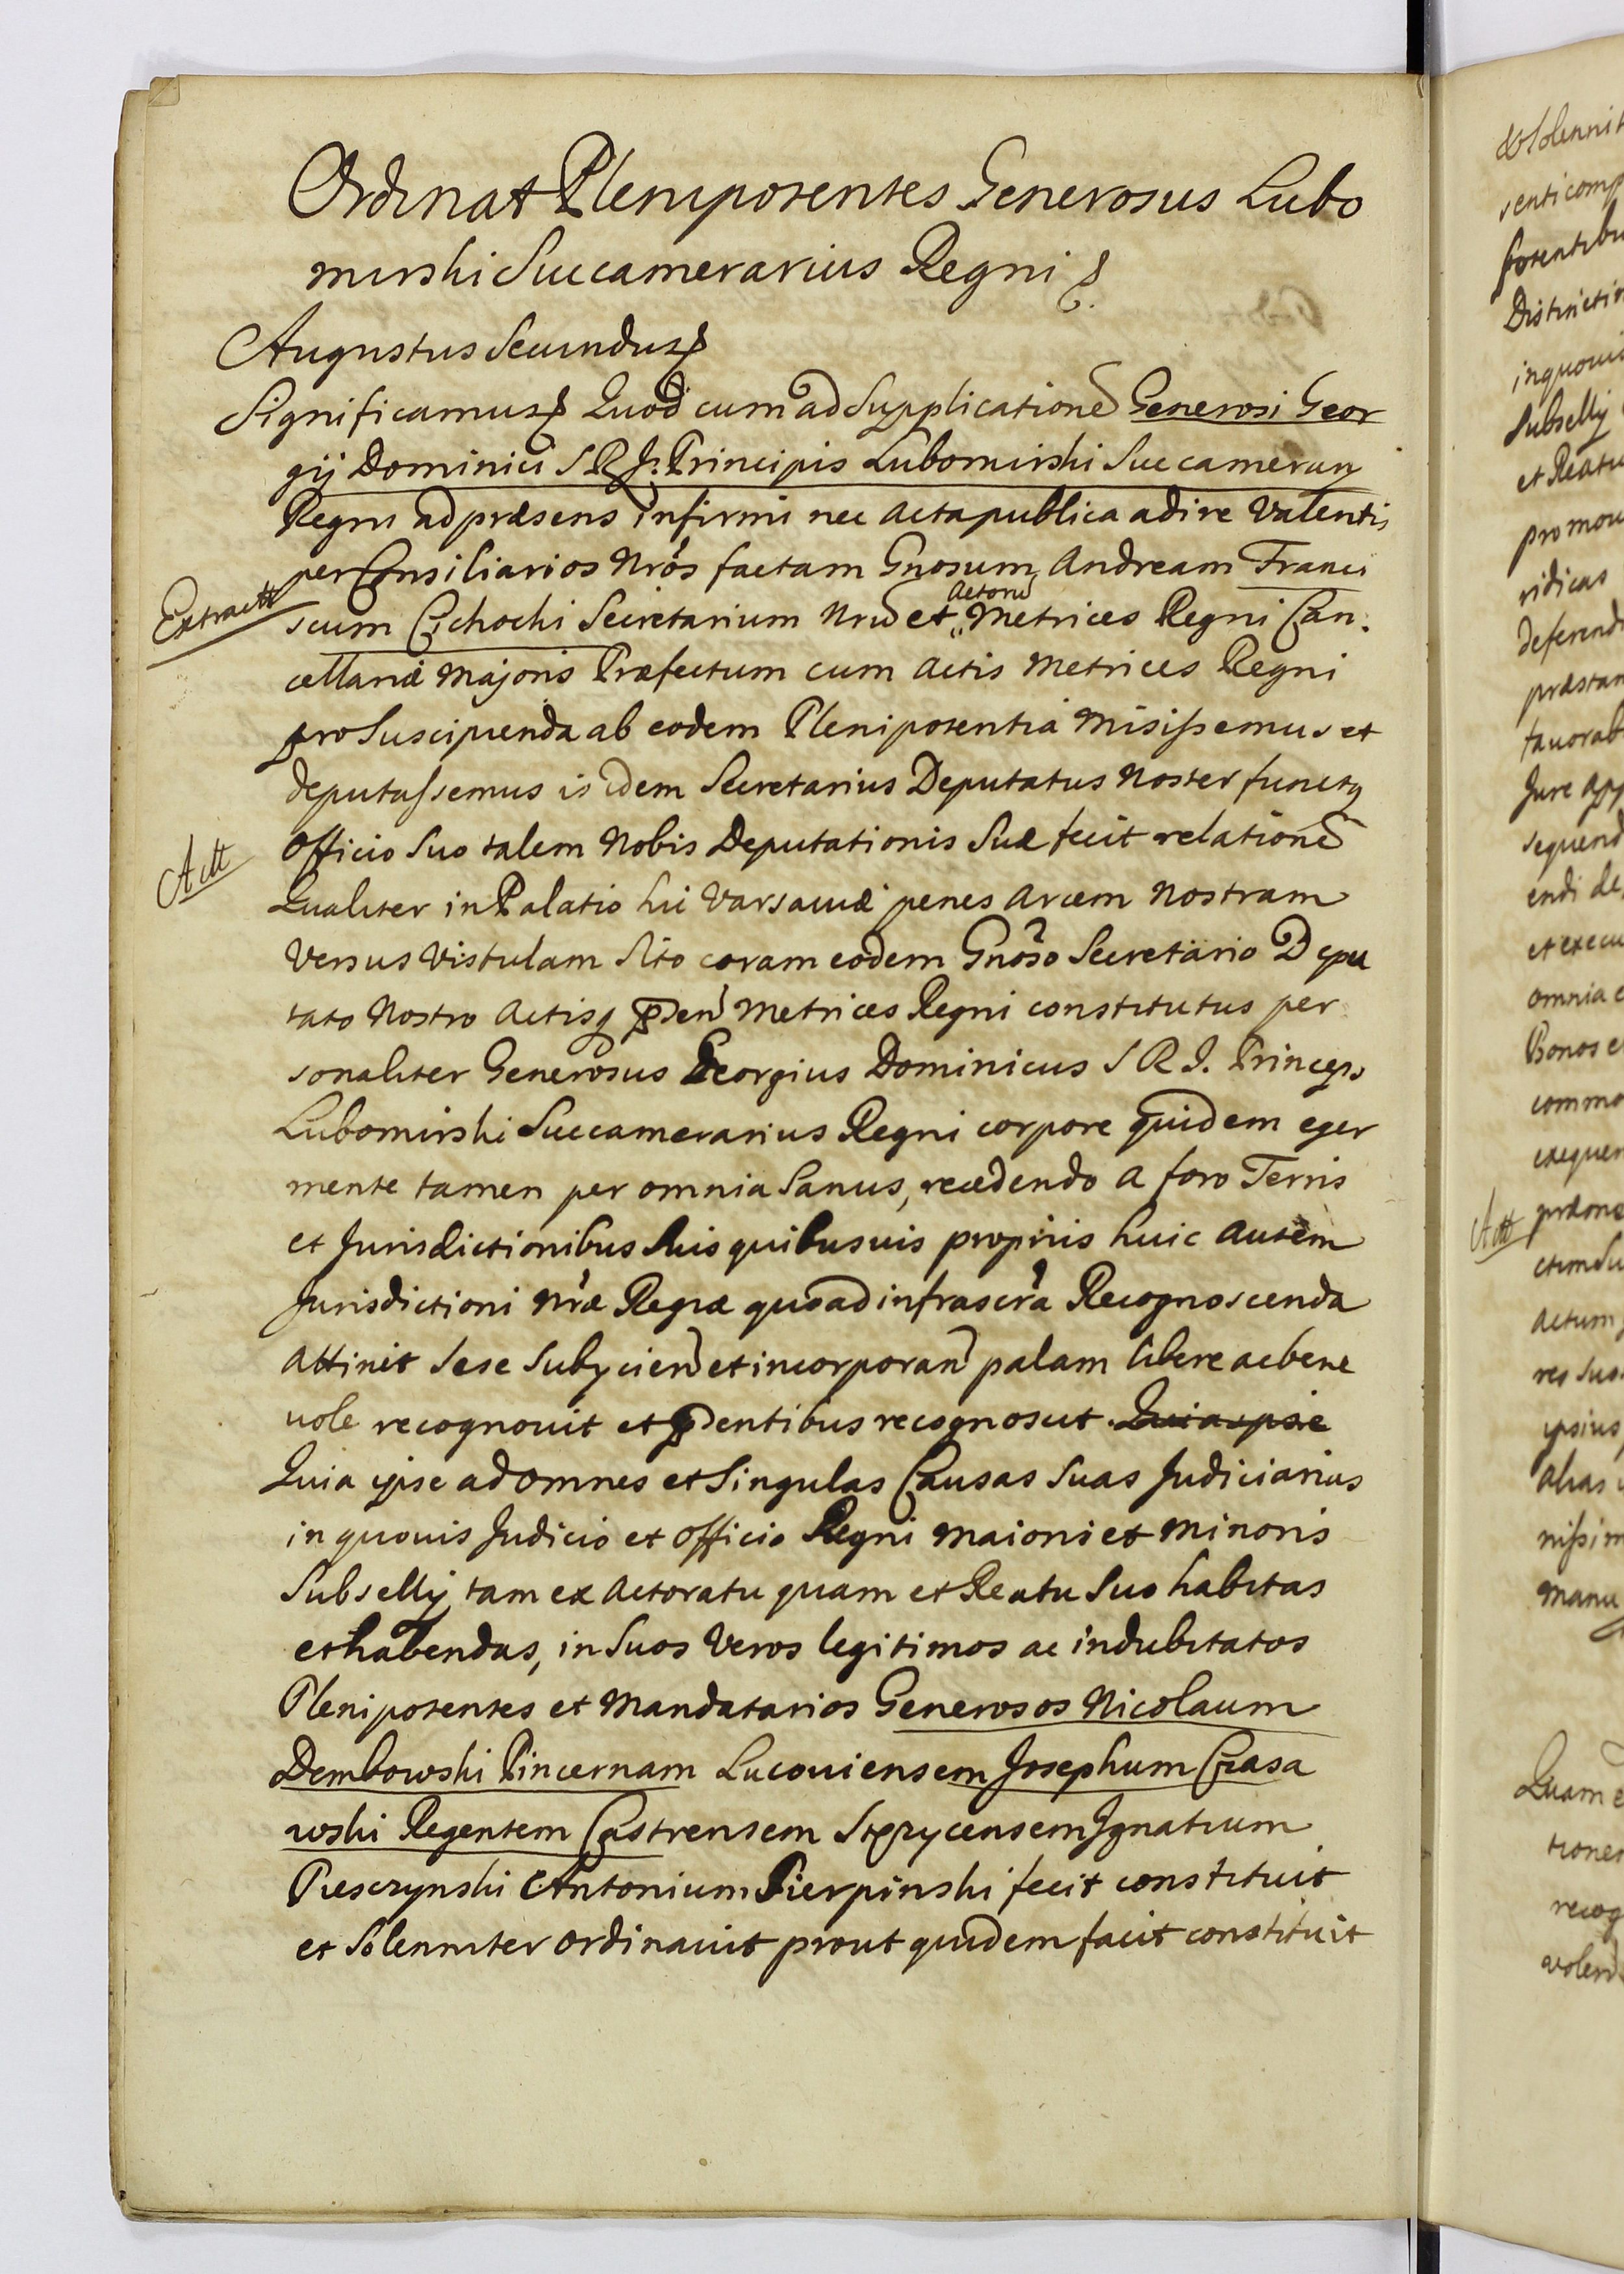 Ordinat Plenipotentes Generosus Lubo
mirski Succamerarius Regni &.
Augustus Secundus &
Significamus & Quod cum ad Supplicatione Generosi Geor
gij Dominici S R J: Principis Lubomirski Succamerarij
Regni ad præsens infirmi nec Acta publica adire Valentis
per Consiliarios Nrôs factam Gnosum Andream Franci
Extractt
scum Cichocki Secretarium Nrū et Actorū Metrices Regni Can:
cellariæ Majoris Præfectum cum Actis Metrices Regni
pro Suscipienda ab eodem Plenipotentia Misissemus et
deputassemus is idem Secretarius Deputatus Noster functq
Officio Suo talem Nobis Deputationis Suæ fecit relationē
Actt
Qualiter in Palatio hic Varsaviæ penes Arcem Nostram
Versus Vistulam Sito coram eodem Gnôso Secretario Depu
tato Nostro Actisq pden Metrices Regni constitutus per
sonaliter Generosus Georgius Dominicus S R J. Princeps
Lubomirski Succamerarius Regni corpore quidem eger
mente tamen per omnia Sanus, recedendo a foro Terris
et Jurisdictionibus Suis quibusvis proprijs huic Autem
Jurisdictioni Nrâ Regiæ quoad infrascrâ Recognoscenda
Attinet Sese Subijcien et incorporan palam libere ac bene
vole recognovit et pdentibus recognoscit. Quia ipse
Quia ipse ad Omnes et Singulas Causas Suas Judiciarias
in quovis Judicio et Officio Regni Maioris et Minoris
Subsellij tam ex Actoratu quam et Reatu Suo habitas
et habendas, in Suos Veros legitimos ac indubitatos
Plenipotentes et Mandatarios Generosos Nicolaum
Dembowski Pincernam Lucoviensem Josephum Czasa
wski Regentem Castrensem Stezycensem Ignatium
Piesczynski Antonium Pierpinski fecit constituit
et Solenniter Ordinavit prout quidem facit constituit